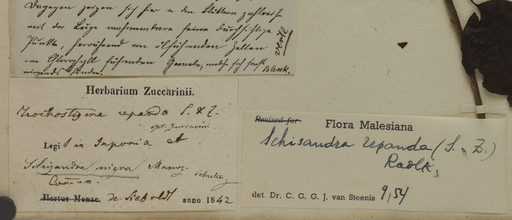 Dagegen zeigen sich hier in den Blättern zahlreiche
mit der Lupe wahrnehmbare feine durchsichtige
Punkte, herrührend von ölführenden Zellen
im führenden Gewebe, welche sich sonst
nirgends finden. Blenk.
Herbarium Zuccarinii.
Trochostigma repanda S. & Z.
Legit in Japonia
Schizandra nigra Maxim.
Hortus Monac. de Siebold anno 1842
Revised for Flora Malesiana
Schisandra repanda (S. & Z.)
Radlk.
det Dr. C. G. G. J. van Steenis 9/54